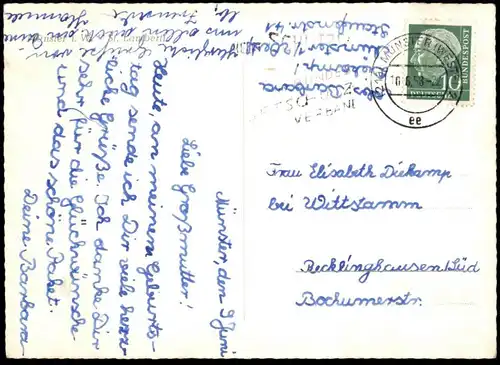 Münster, den 9. Juni
Liebe Großmutter!
Heute, an meinem Geburts-
tag sende ich Dir viele herz-
liche Grüße. Ich danke Dir
sehr für die Glückwünsche
und das schöne Paket.
Deine Barbara
Herzliche Grüße von
uns allen auch an
Abs. Barbara
Diekamp
Münster i/Westf
Staufenstr. 41
MÜNSTER (WESTF)
ee
10
DEUTSCHE
BUNDESPOST
Frau Elisabeth Diekamp
bei Wittstamm
Recklinghausen/Süd
Bochumerstr.